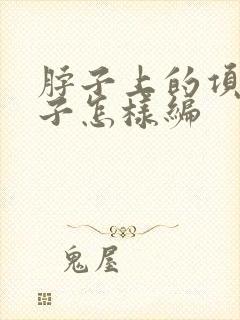 脖子上的項
子怎樣編
鬼屋